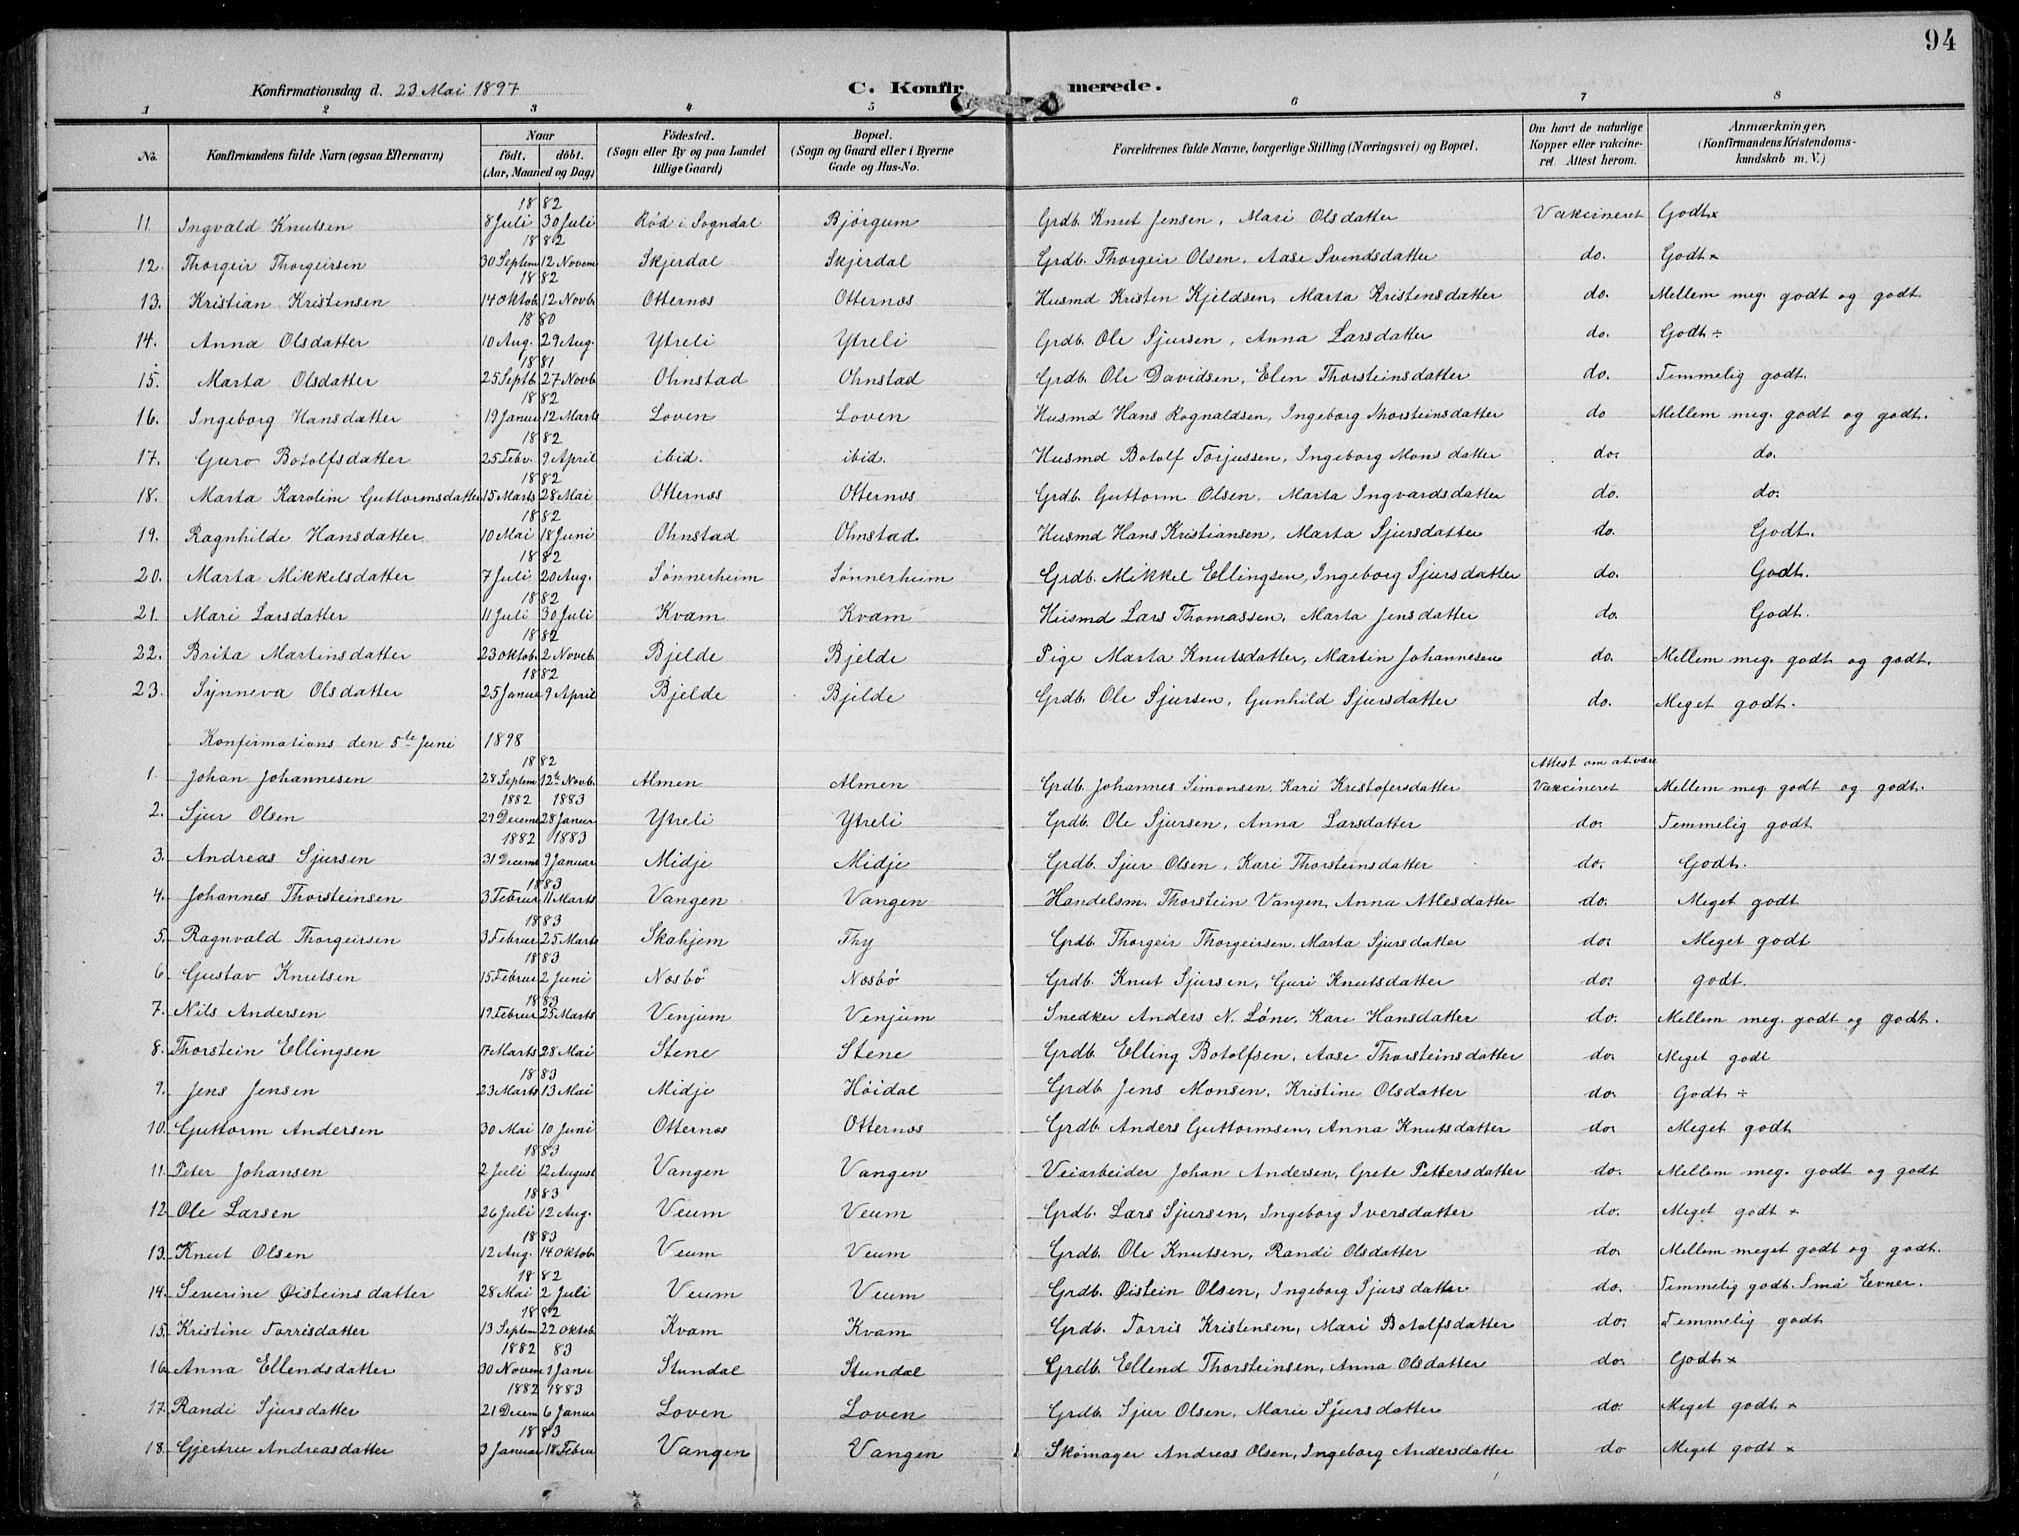 94
Konfirmationsdag d. 23 Mai 1897
C. Konfirmerede.
1 2 3 4 5 6 7 8
No. Konfirmandens fulde Navn (ogsaa Efternavn) Naar födt. döbt. (Aar, Maaned og Dag) Födested. (Sogn eller By og paa Landet tillige Gaard) Bopæl. (Sogn og Gaard eller i Byerne Gade og Hus-No. Forældrenes fulde Navne, borgerlige Stilling (Næringsvei) og Bopæl. Om havt de naturlige Kopper eller vakcineret. Attest herom. Anmærkninger, (Konfirmandens Kristendomskundskab m. V.)
1882
11. Ingvald Knutsen 8 Juli 30 Juli Rød i Sogndal Bjørgum Grdb. Knut Jensen, Mari Olsdatter Vakcineret Godt ×
1882
12. Thorgeir Thorgeirsen 30 Septem 12 Novem Skjerdal Skjerdal Grdb. Thorgeir Olsen, Aase Svendsdatter do. Godt ×
1882
13. Kristian Kristensen 14 Oktob. 12 Novb. Otternæs Otternæs Husmd Kristen Kjeldsen, Marta Kristensdatter do. Mellem meg. godt og godt.
1880
14. Anna Olsdatter 10 Aug. 29 Aug. Ytreli Ytreli Grdb. Ole Sjursen, Anna Larsdatter do. Godt ÷
1881
15. Marta Olsdatter 25 Septb. 27 Novb. Ohnstad Ohnstad Grdb. Ole Davidsen, Elen Thorsteinsdatter do. Temmelig godt.
1882
16. Ingeborg Hansdatter 19 Januar 12 Marts Loven Loven Husmd Hans Rognaldsen, Ingeborg Thorsteinsdatter do Mellem meg. godt og godt.
1882
17. Guro Botolfsdatter 25 Febr. 9 April ibid. ibid. Husmd Botolf Torjussen, Ingeborg Monsdatter do. do.
1882
18. Marta Karolim Guttormsdatter 15 Marts 28 Mai Otternæs Otternæs Grdb. Guttorm Olsen, Marta Ingvardsdatter do. do.
1882
19. Ragnhilde Hansdatter 10 Mai 18 Juni Ohnstad Ohnstad Husmd Hans Kristiansen, Marta Sjursdatter do. Godt.
1882
20. Marta Mikkelsdatter 7 Juli 20 Aug. Sønnerheim Sønnerheim Grdb. Mikkel Ellingsen, Ingeborg Sjursdatter do. Godt.
1882
21. Mari Larsdatter 11 Juli 30 Juli Kvam Kvam Husmd Lars Thomassen, Marta Jensdatter do. Godt.
1882
22. Brita Martinsdatter 23 Oktob. 2 Noveb. Bjelde Bjelde Pige Marta Knutsdatter, Martin Johannesen do. Mellem meg. godt og godt.
1882
23. Synneva Olsdatter 25 Januar 9 April Bjelde Bjelde Grdb. Ole Sjursen, Gunhild Sjursdatter do. Meget godt.
Konfirmations den 5te Juni 1898
1882 Attest om at være
1. Johan Johannesen 28 Septem 12te Novb. Almen Almen Grdb. Johannes Simonsen, Kari Kristofersdatter Vakcineret Mellem meg. godt og godt.
1882 1883
2. Sjur Olsen 29 Decem 28 Januar Ytreli Ytreli Grdb. Ole Sjursen, Anna Larsdatter do. Temmelig godt
1882 1883
3. Andreas Sjursen 31 Decem 9 Januar Midje Midje Grdb. Sjur Olsen, Kari Thorsteinsdatter do. Godt.
1883
4. Johannes Thorsteinsen 3 Februr 11 Marts Vangen Vangen Handelsm. Thorstein Vangen, Anna Atlesdatter do. Meget godt
1883
5. Ragnvald Thorgeirsen 3 Februr 25 Marts Skahjem Thy Grdb. Thorgeir Thorgeirsen, Marta Sjursdatter do. Meget godt
1883
6. Gustav Knutsen 15 Februr 2 Juni Næsbø Næsbø Grdb. Knut Sjursen, Guri Knutsdatter do. godt.
1883
7. Nils Andersen 19 Februr 25 Marts Venjum Venjum Snedker Anders N. Løne, Kari Hansdatter do. Mellem meg. godt og godt.
8. Thorstein Ellingsen 17 Marts 28 Mai Stene Stene Grdb. Elling Botolfsen, Aase Thorsteinsdatter do. Meget godt
1883
9. Jens Jensen 23 Marts 13 Mai Midje Høidal Grdb. Jens Monsen, Kristine Olsdatter do. Godt ÷
10. Guttorm Andersen 30 Mai 10 Juni Otternæs Otternæs Grdb. Anders Guttormsen, Anna Knutsdatter do. Meget godt
1883
11. Peter Johansen 2 Juli 12 August Vangen Vangen Veiarbeider Johan Andersen, Grete Pettersdatter do. Mellem meg. godt og godt
1883
12. Ole Larsen 26 Juli 12 Aug. Veum Veum Grdb. Lars Sjursen, Ingeborg Iversdatter do. Meget godt ×
1883
13. Knut Olsen 12 Aug. 14 Oktob. Veum Veum Grdb. Ole Knutsen, Randi Olsdatter do. Mellem meget godt og godt.
1882
14. Severine Øisteinsdatter 28 Mai 2 Juli Veum Veum Grdb. Øistein Olsen, Ingeborg Sjursdatter do. Temmelig godt. Små Evner.
1882
15. Kristine Torrisdatter 13 Septem 22 Oktob. Kvam Kvam Grdb. Torris Kristensen, Mari Botolfsdatter do. Temmelig godt
1882 83
16. Anna Ellendsdatter 30 Novem 1 Janu Stundal Stundal Grdb. Ellend Thorsteinsen, Anna Olsdatter do. Godt ×
1882 1883
17. Randi Sjursdatter 21 Decem 6 Januar Loven Loven Grdb. Sjur Olsen, Marie Sjursdatter do. Meget godt. ×
1883
18. Gjertrue Andreasdatter 3 Januar 18 Februr Vangen Vangen Skomager Andreas Olsen, Ingeborg Andersdatter do Meget godt ×